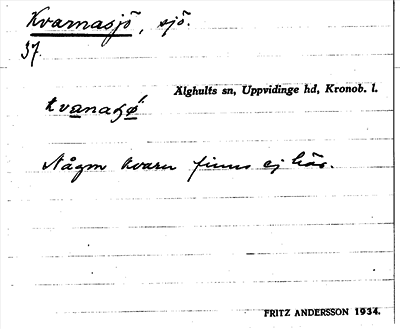 Kvarnasjö, sjö.
37.
Älghults sn, Uppvidinge hd, Kronob. l.
Någon kvarn finns ej här.
FRITZ ANDERSSON 1934.